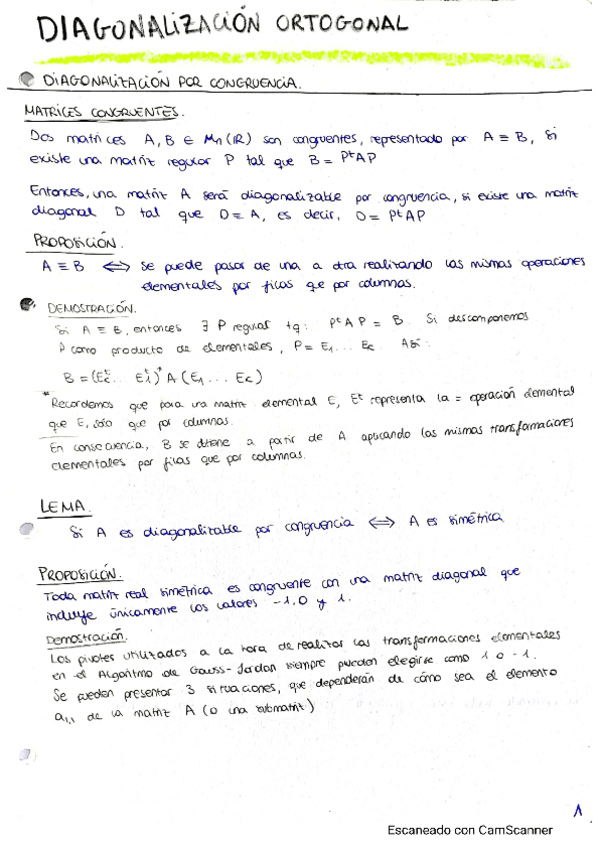 DIAGONALIZACIÓN ORTOGONAL
DIAGONALIZACIÓN POR CONGRUENCIA.
MATRICES CONGRUENTES.
Dos matrices A, B ∈ Mn (IR) son congruentes, representado por A ≡ B, si
existe una matriz regular P tal que B = PᵗAP
Entonces, una matriz A será diagonalizable por congruencia, si existe una matriz
diagonal D tal que D ≡ A, es decir, D = PᵗAP
PROPOSICIÓN.
A ≡ B ⟺ Se puede pasar de una a otra realizando las mismas operaciones
elementales por filas que por columnas.
DEMOSTRACIÓN.
Si A ≡ B, entonces ∃ P regular tq: PᵗAP = B. Si descomponemos
P como producto de elementales, P = E₁... Ec. Así:
B = (Eᵗc... Eᵗ₁)* A (E₁... Ec)
*Recordemos que para una matriz elemental E, Eᵗ representa la = operación elemental
que E, sólo que por columnas.
En consecuencia, B se obtiene a partir de A aplicando las mismas transformaciones
elementales por filas que por columnas.
LEMA.
Si A es diagonalizable por congruencia ⟺ A es simétrica
PROPOSICIÓN.
Toda matriz real simétrica es congruente con una matriz diagonal que
incluye únicamente los valores -1, 0 y 1.
Demostración.
Los pivotes utilizados a la hora de realizar las transformaciones elementales
en el Algoritmo de Gauss-Jordan siempre pueden elegirse como 1 o -1.
Se pueden presentar 3 situaciones, que dependerán de cómo sea el elemento
a₁,₁ de la matriz A (o una submatriz)
1
Escaneado con CamScanner